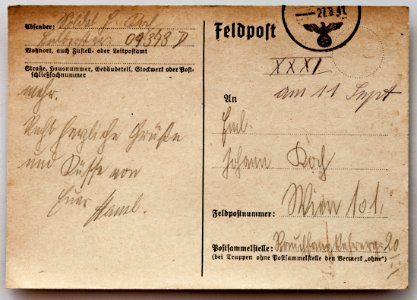 Absender:
09398 D
Wohnort, auch Zustell- oder Leitpostamt
Straße, Hausnummer, Gebäudeteil, Stockwerk oder Post-
schließfachnummer
mehr.
Recht herzliche Grüße
und Küsse von
Euer
Feldpost
XXXI
am 11 Sept
An
Johann Koch
Wien 101.
Feldpostnummer:
Postsammelstelle: 20
(bei Truppen ohne Postsammelstelle den Vermerk „ohne")